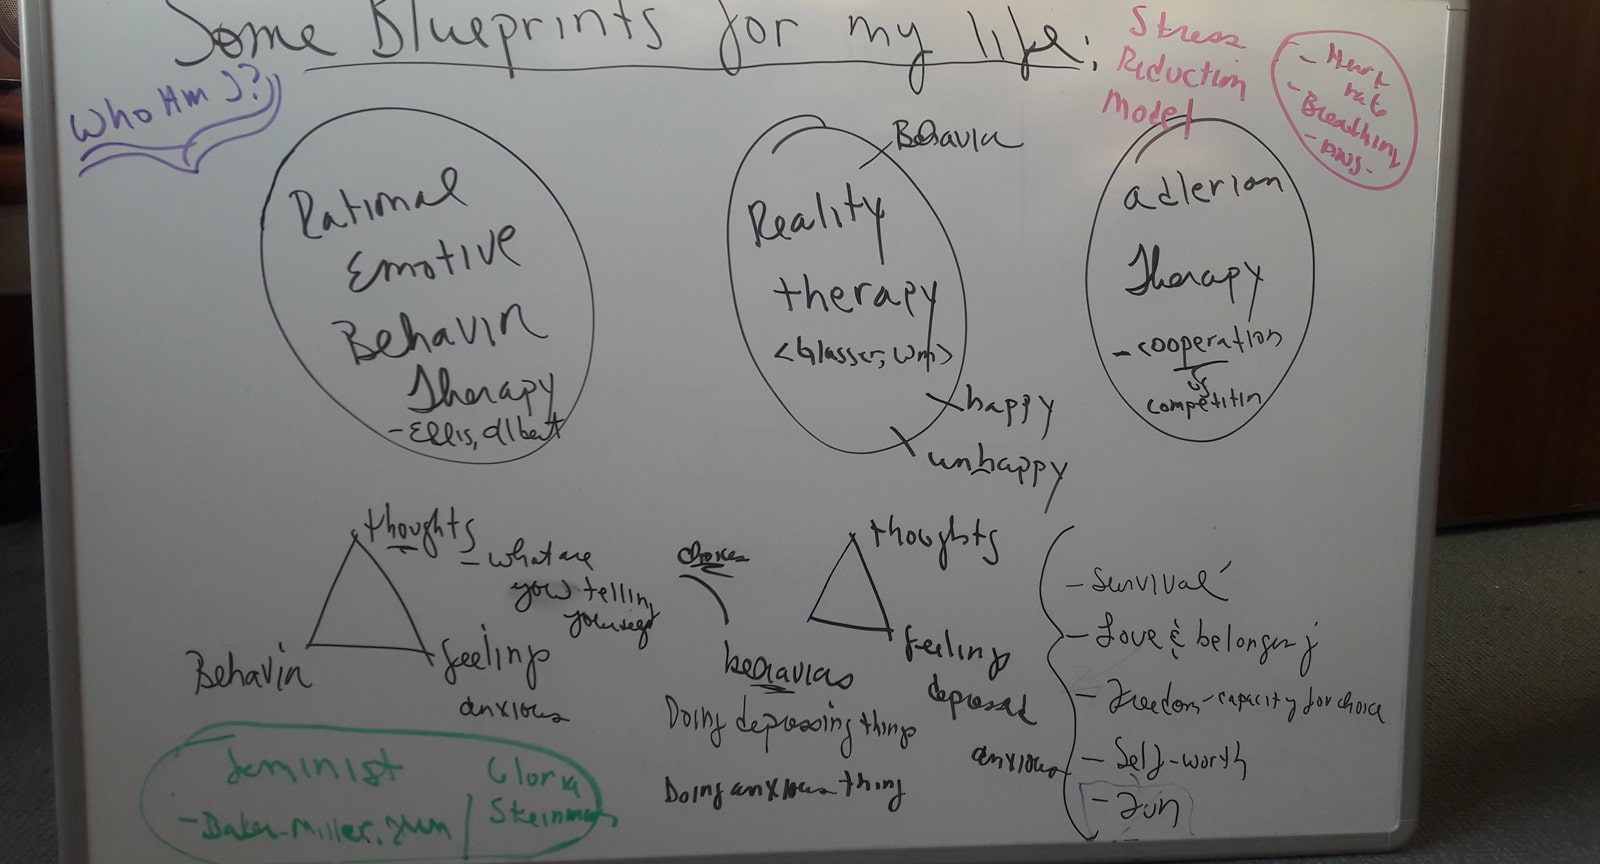 Some Blueprints for my life:
Stress
Reduction
Model
- Heart
rate
- Breathing
Who Am I?
Rational
Emotive
Behavior
Therapy
- Ellis, Albert
Behavior
Reality
therapy
<Glasser, Wm>
happy
unhappy
adlerian
Therapy
- cooperation
vs
competition
thoughts
- what are
you telling
yourself
Behavior
feelings
anxious
choices
thoughts
behaviors
feelings
depressed
anxious
Doing depressing things
Doing anxious thing
- Survival
- Love & belonging
- Freedom - capacity for choice
- Self-worth
- Fun
Feminist
- Baker-Miller, Jean
Gloria
Steinman